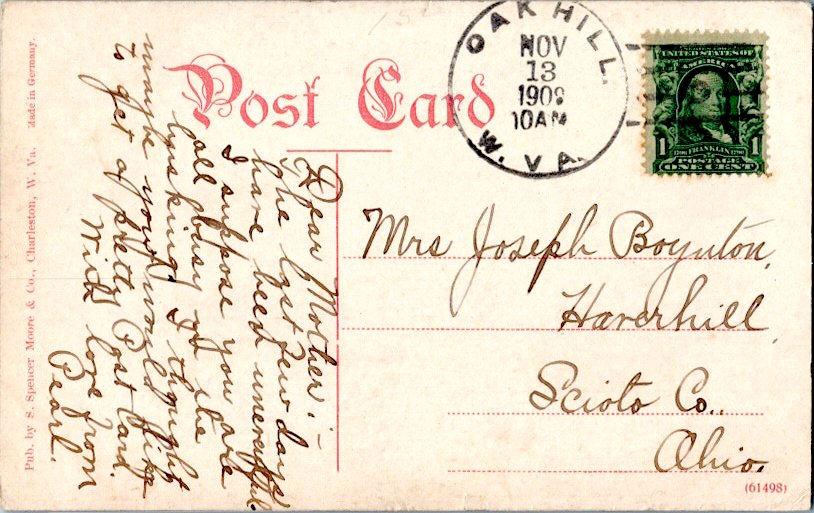 Post Card
OAK HILL.
NOV
13
1909
10AM
W. VA.
SERIES 1902
UNITED STATES OF
AMERICA
1 1
1706 FRANKLIN 1790
POSTAGE
ONE CENT
Dear Mother:-
The last few days
have been uneventful.
I suppose you are
all busy at the
husking. I thought
maybe you would like
to get a pretty Post Card.
With love from
Pearl.
Mrs Joseph Boynton,
Haverhill
Scioto Co.,
Ohio.
(61498)
Pub. by S. Spencer Moore & Co., Charleston, W. Va. Made in Germany.